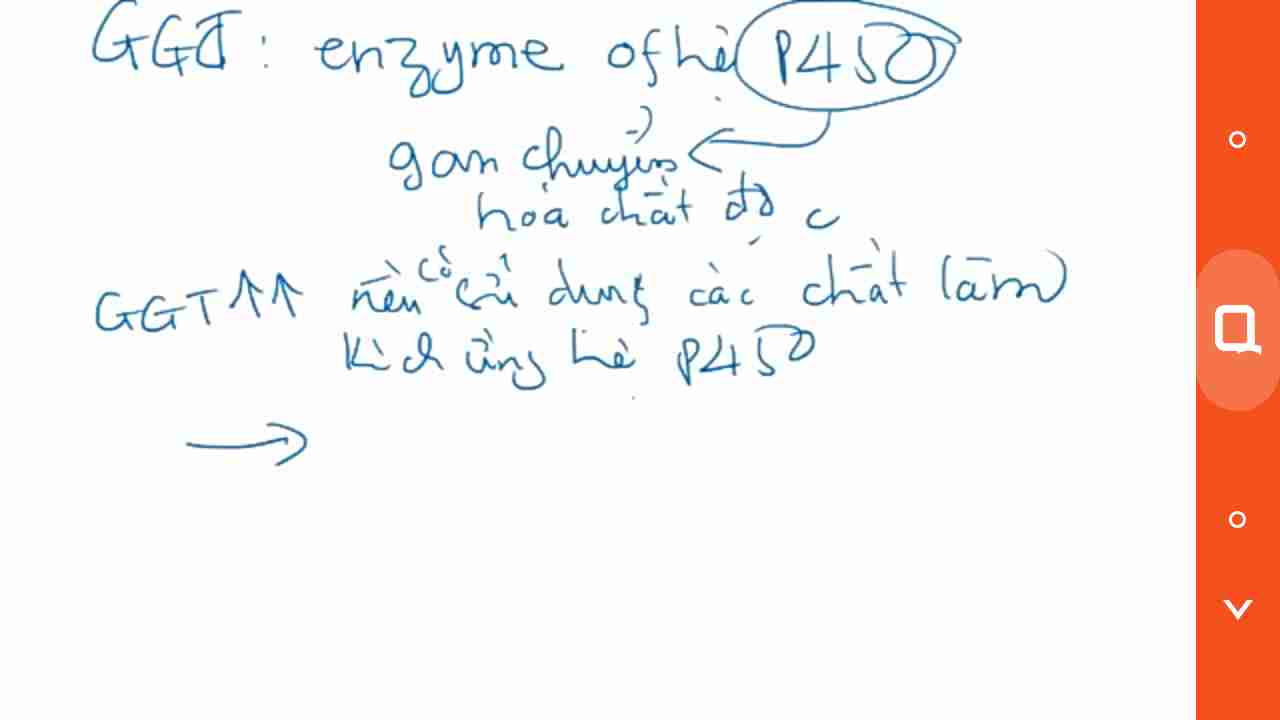 GGT: enzyme of hệ P450
gan chuyển
hóa chất độc
GGT↑↑ nếu có sử dụng các chất làm
kích ứng hệ P450
→